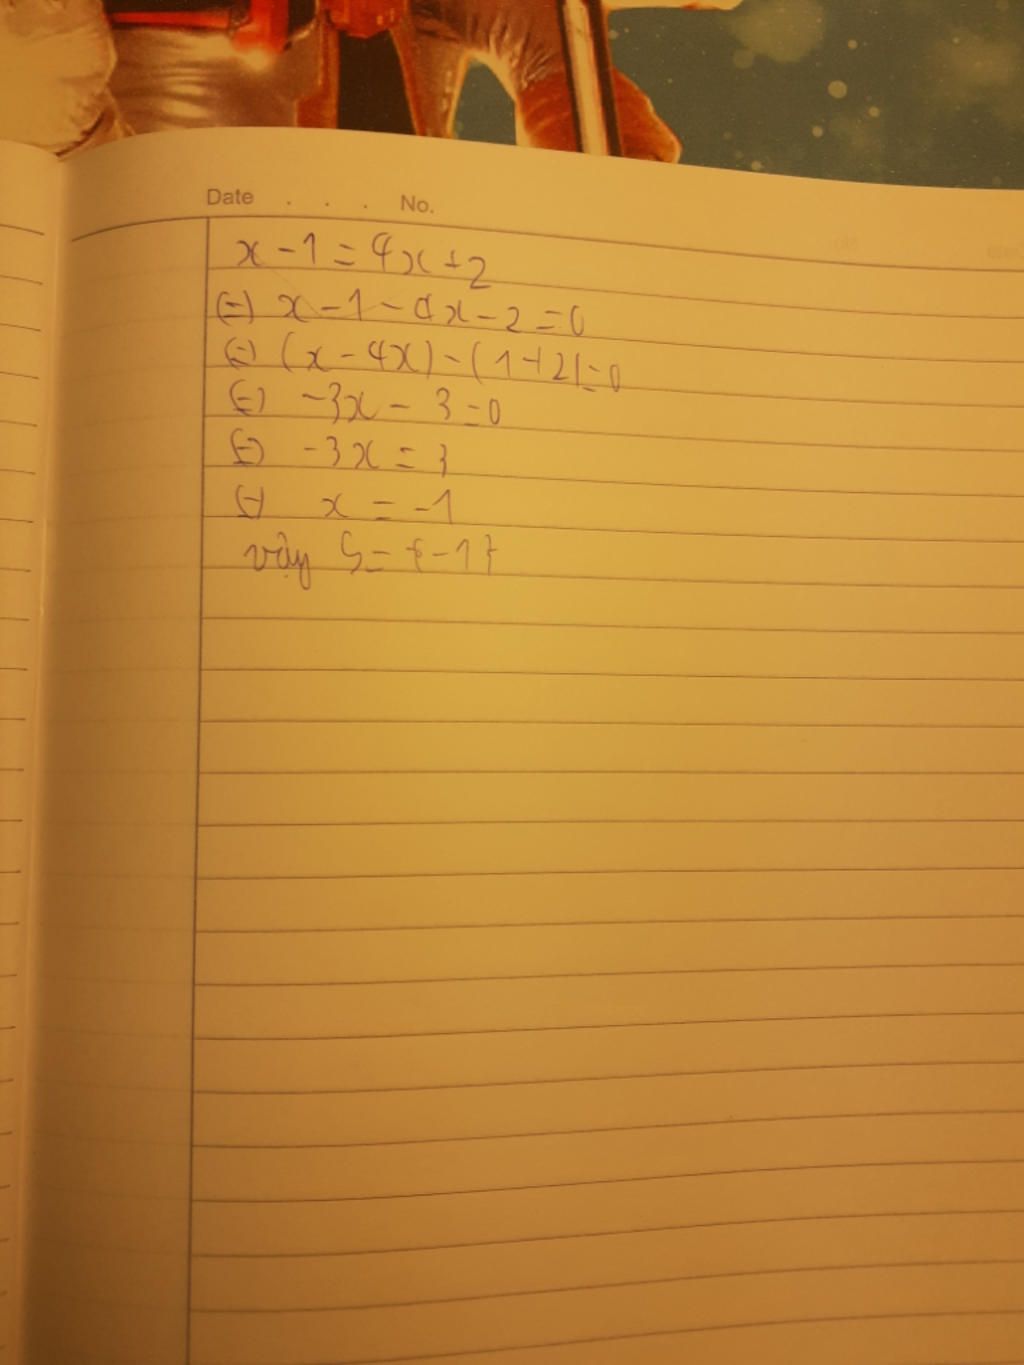 Date . . . No.
x - 1 = 4x + 2
(=) x - 1 - 4x - 2 = 0
(=) (x - 4x) - (1 + 2) = 0
(=) -3x - 3 = 0
(=) -3x = 3
(=) x = -1
vậy S = {-1}